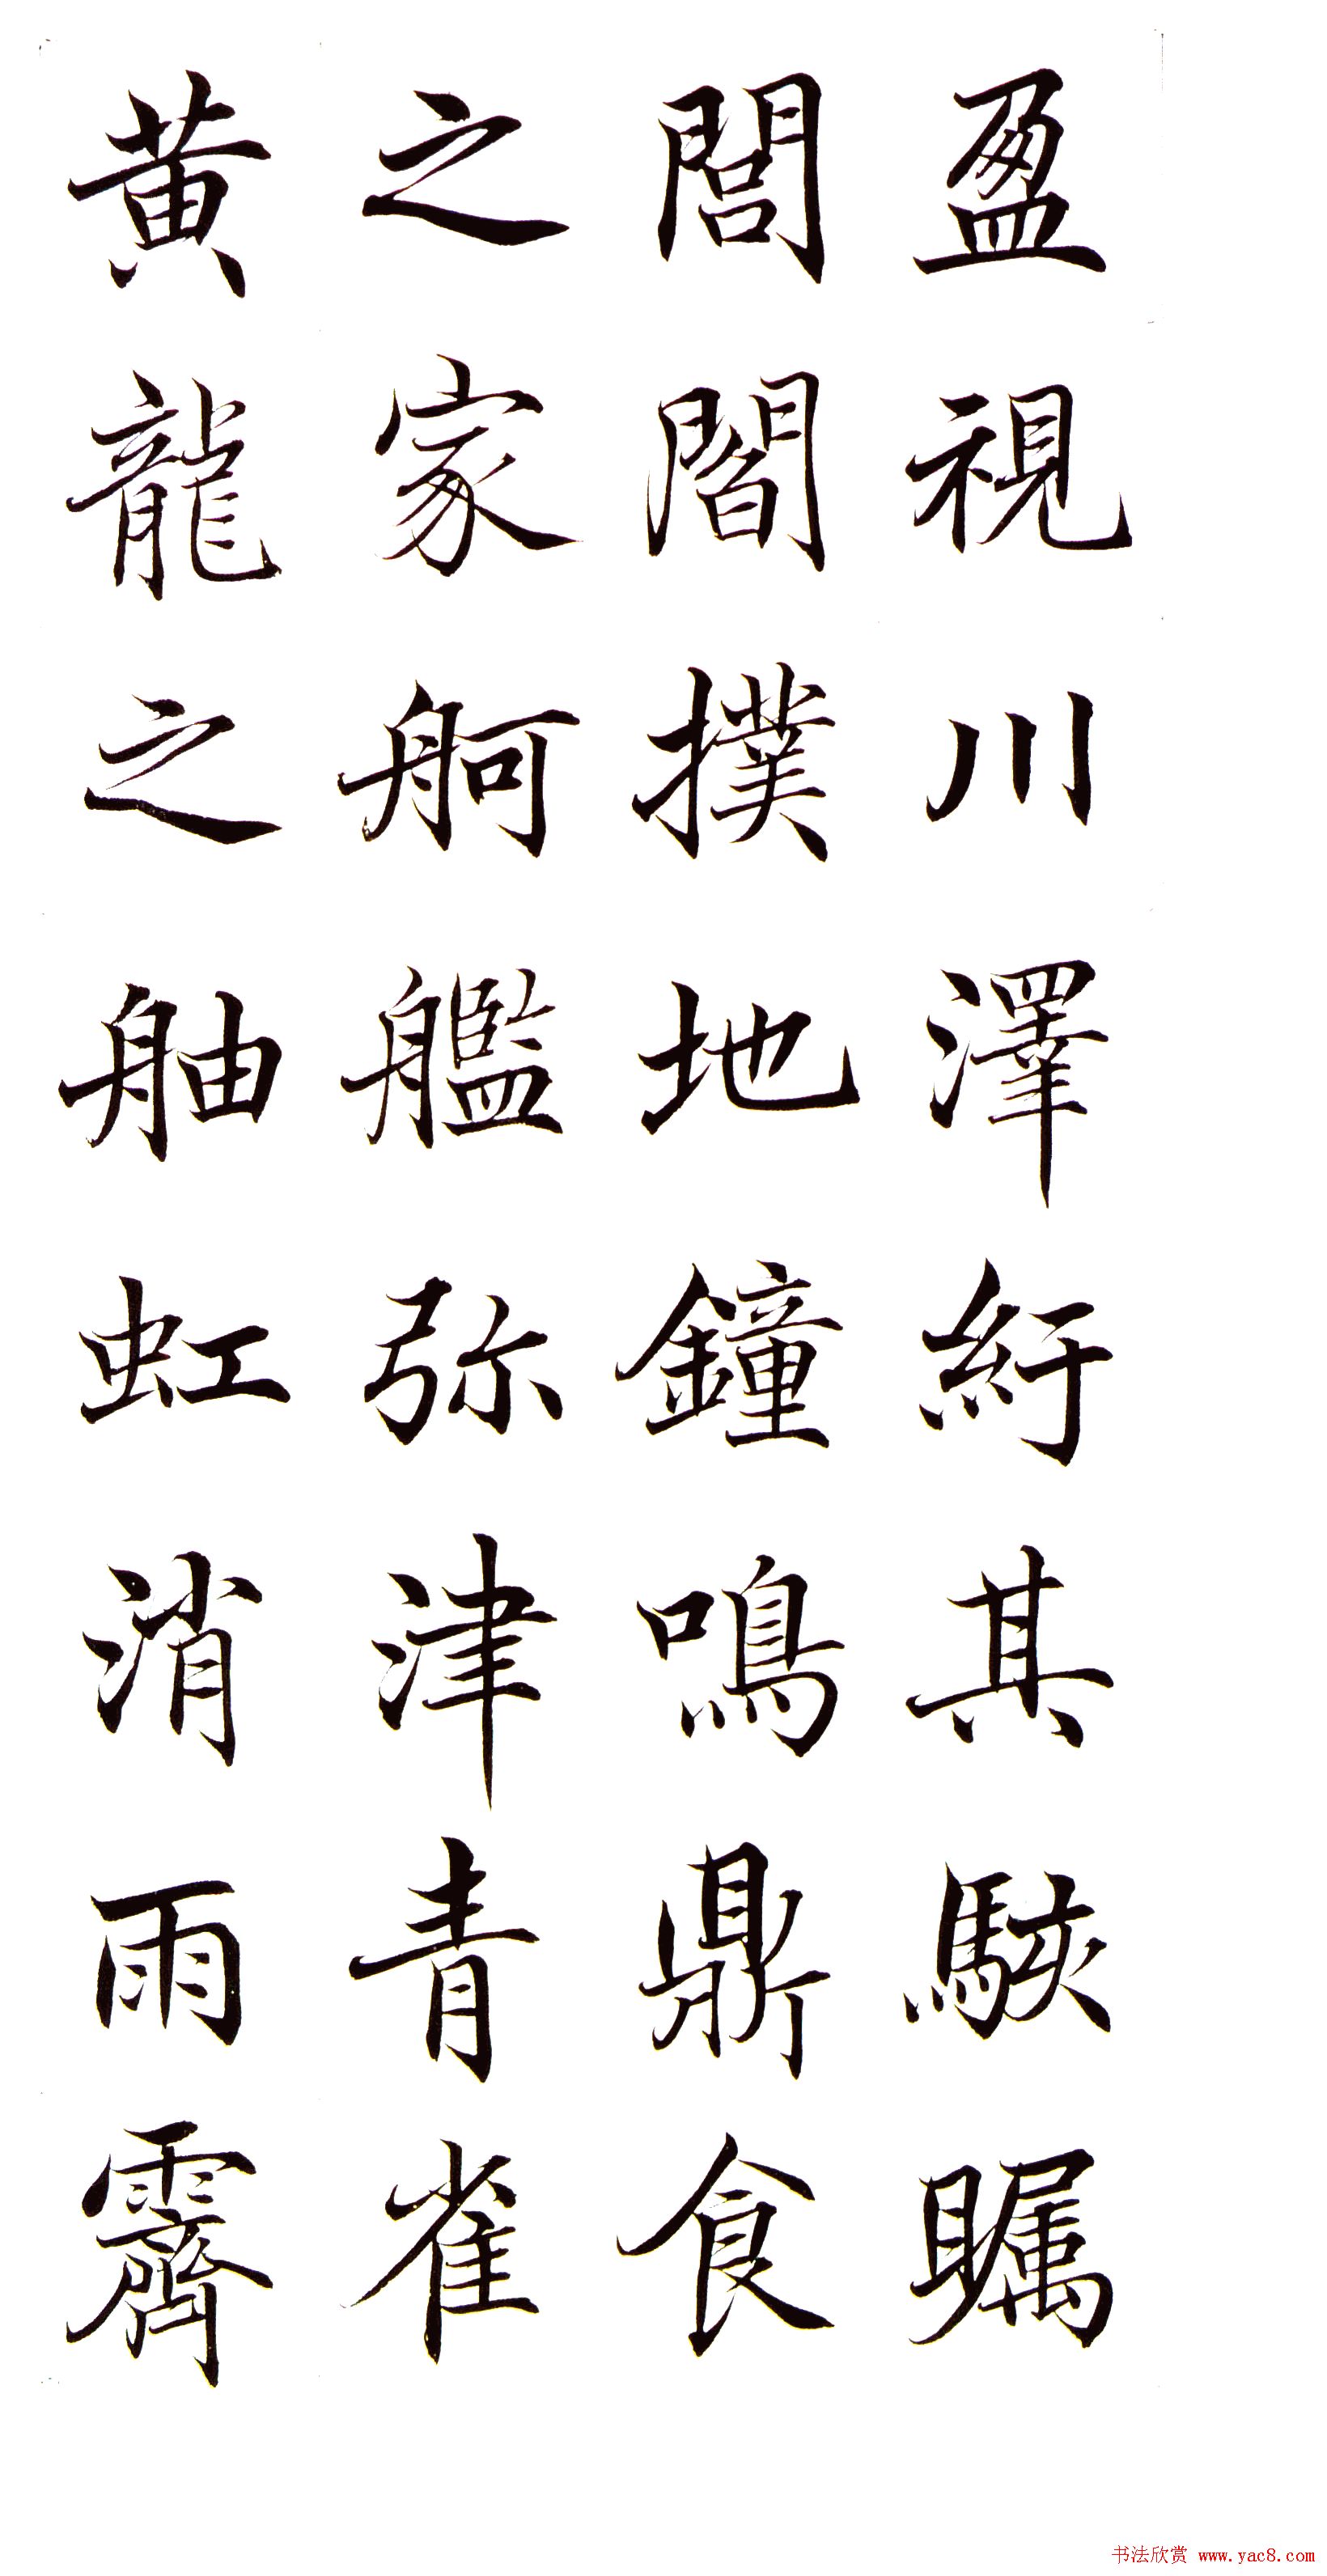 盈視川澤紆其駭矚
閭閻撲地鐘鳴鼎食
之家舸艦弥津青雀
黄龍之舳虹消雨霽
书法欣赏 www.yac8.com